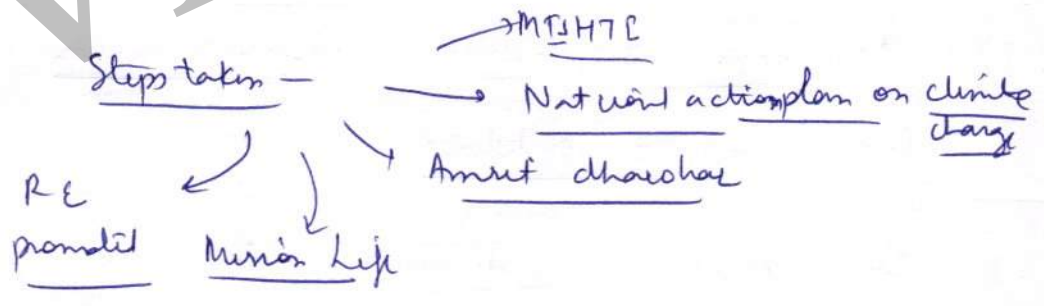 Steps taken -
→ MISHTI
→ National action plan on climate
change
Amrit dharohar
RE
promotil
Mission Life